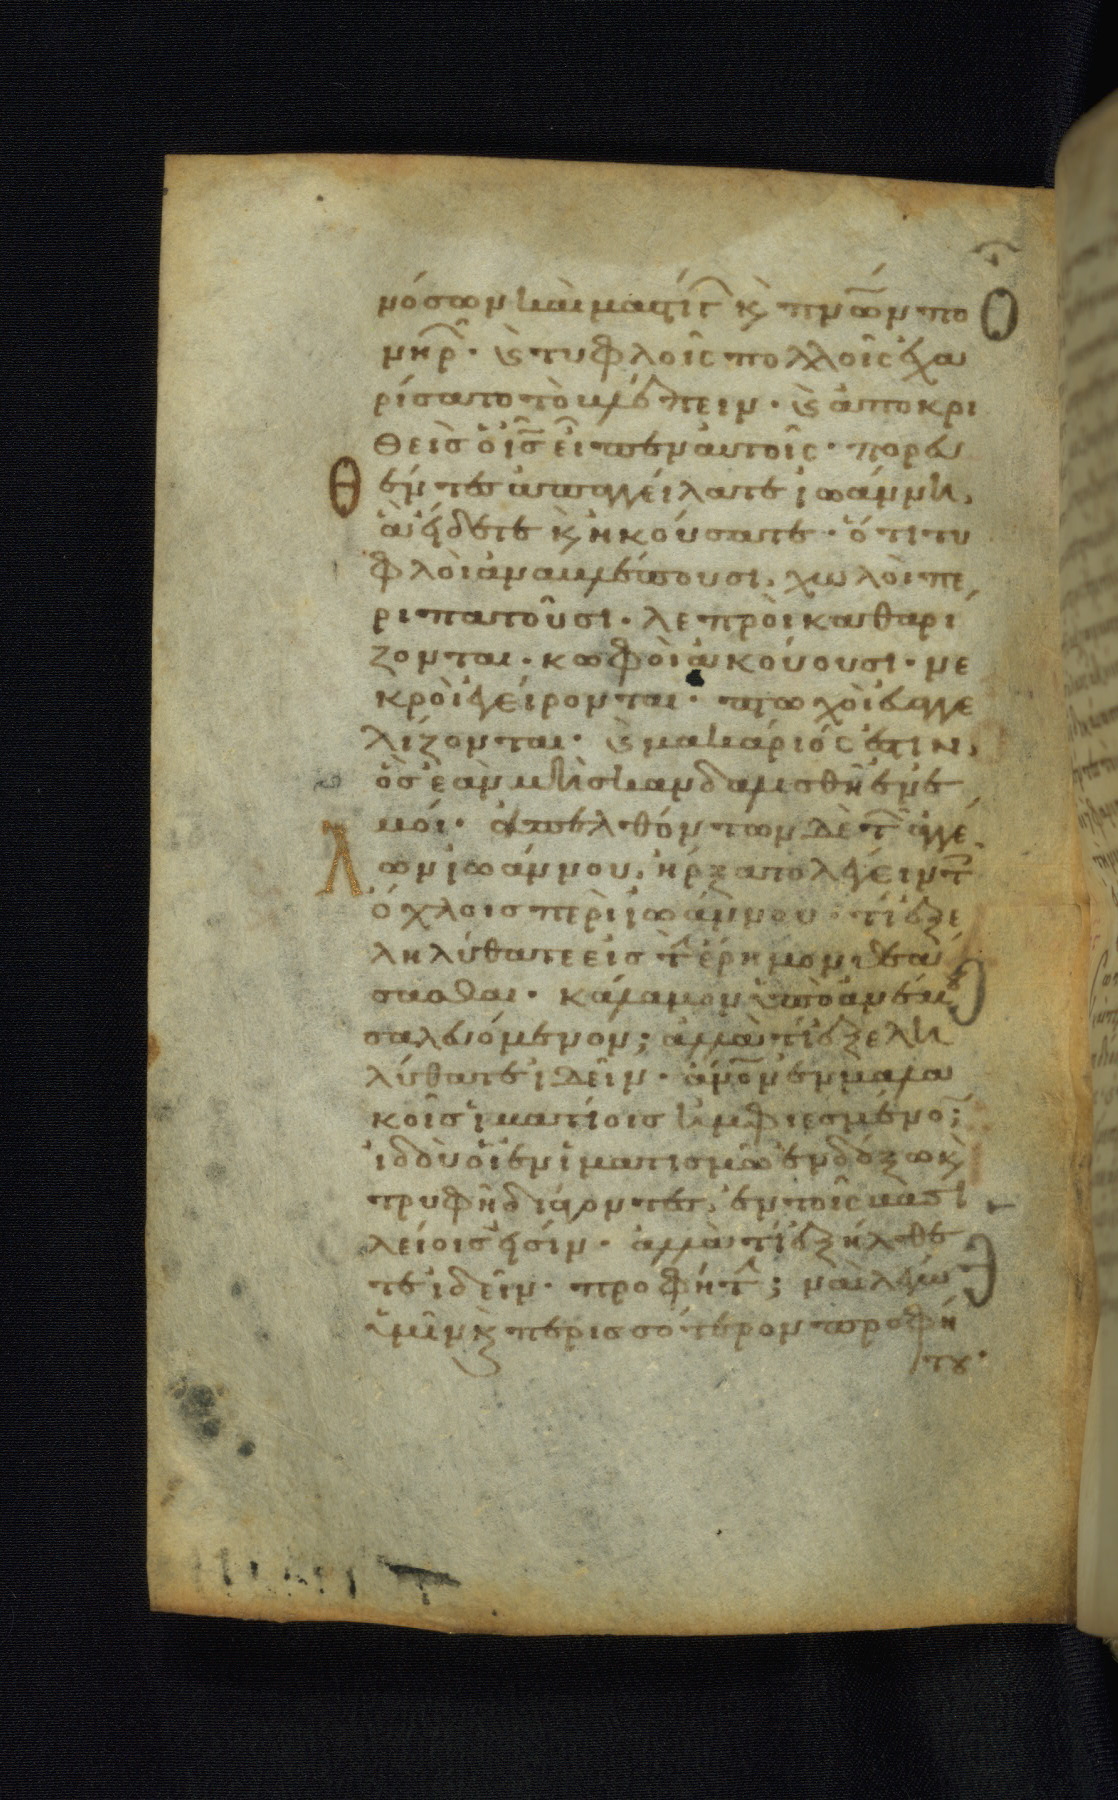 νόσων και μαστίγ κ πνων πο
νηρ. κ τυφλοῖς πολλοῖς ἐχα
ρίσατο τὸ βλέπειν. κ ἀποκρι
θεὶς ὁ ις εἶπεν αυτοῖς. πορευ
θέντες ἀπαγγείλατε ἰωάννη,
ἃ εἴδετε κ ἠκούσατε. ὅτι τυ
φλοὶ ἀναβλέπουσι, χωλοὶ πε
ριπατοῦσι. λεπροὶ καθαρί
ζονται. κωφοὶ ἀκούουσι. νε
κροὶ ἐγείρονται. πτωχοὶ εὐαγγε
λίζονται. κ μακάριός ἐστιν,
ὃς ἐὰν μὴ σκανδαλισθῆ ἐν ἐ
μοί. ἀπελθόντων δὲ τ ἀγγέ
λων ἰωάννου, ἤρξατο λέγειν τ
ὄχλοις περὶ ἰωάννου. τί ἐξε
ληλύθατε εἰς τ ἔρημον θεά
σασθαι. κάλαμον ὑπὸ ἀνέμου
σαλευόμενον; ἀλλὰ τί ἐξελη
λύθατε ἰδεῖν. ανον ἐν μαλα
κοῖς ἱματίοις ἠμφιεσμένο;
ἰδοὺ οἱ ἐν ἱματισμῶ ἐνδόξω κ
τρυφῆ διάγοντες, ἐν τοῖς βασι
λείοις εἰσίν. ἀλλὰ τί ἐξήλθε
τε ἰδεῖν. προφήτ; ναὶ λέγω
ὑμῖν κ περισσότερον προφή
του.